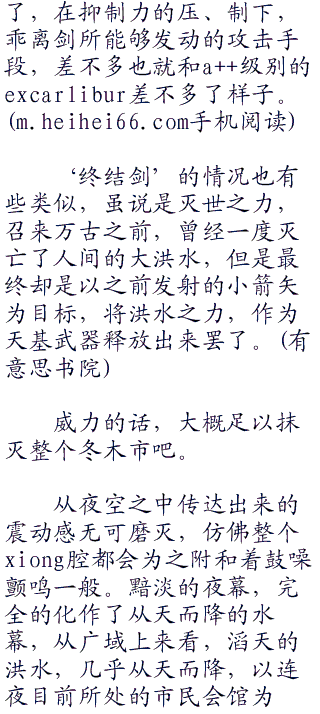 了，在抑制力的压、制下，
乖离剑所能够发动的攻击手
段，差不多也就和a++级别的
excarlibur差不多了样子。
(m.heihei66.com手机阅读)
‘终结剑’的情况也有
些类似，虽说是灭世之力，
召来万古之前，曾经一度灭
亡了人间的大洪水，但是最
终却是以之前发射的小箭矢
为目标，将洪水之力，作为
天基武器释放出来罢了。(有
意思书院)
威力的话，大概足以抹
灭整个冬木市吧。
从夜空之中传达出来的
震动感无可磨灭，仿佛整个
xiong腔都会为之附和着鼓噪
颤鸣一般。黯淡的夜幕，完
全的化作了从天而降的水
幕，从广域上来看，滔天的
洪水，几乎从天而降，以连
夜目前所处的市民会馆为